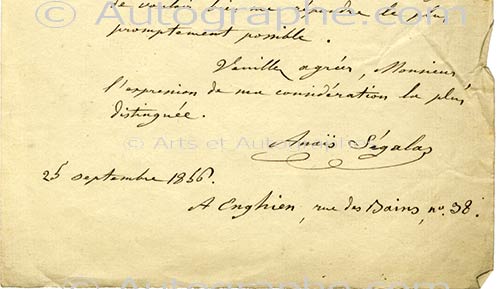 © Autographe.com
de vouloir bien me répondre le plus
promptement possible.
Veuillez agréer, Monsieur
l'expression de ma considération la plus
distinguée.
© Arts et Autographes
Anaïs Ségalas
25 septembre 1856.
A Enghien, rue des Bains, no. 38.
© Autographe.com